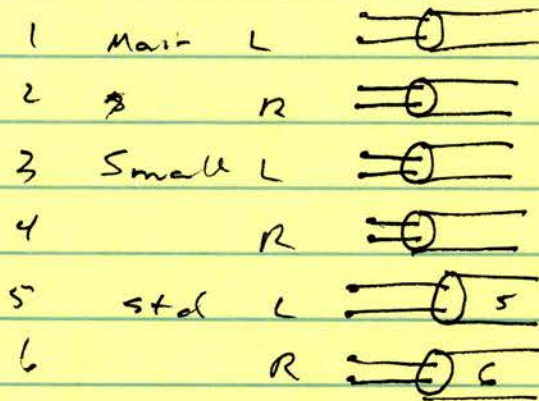 1 Main L
2 R
3 Small L
4 R
5 std L 5
6 R 6